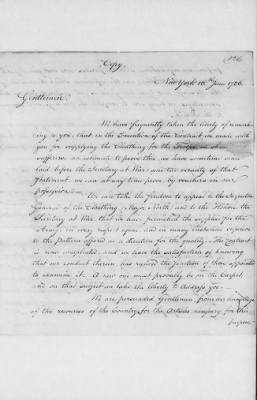 Copy
New York 16th June 1786
Gentlemen
We have frequently taken the liberty of remark
ing to you, that in the Execution of the Contract we made with
you for supplying the Cloathing for the Troops, we are
sufferers, an estimate to prove this, we have sometime since
laid before the Secretary at War, and the veracity of that
Statement we can at any time prove by vouchers in our
possession
We can take the freedom to appeal to the Inspector
General of the Cloathing Major North, and to the Honble the
Secretary at War, that we have furnished the supplies for the
Army, in every respect equal and in many instances superior
to the Pattern offered as a direction for the quality. The Contract
is now compleated, and we have the satisfaction of knowing
that our conduct therein, has received the sanction of those appointed
to examine it. A new one must probably be on the Carpet,
and on that subject we take the liberty to Address you
We are persuaded Gentlemen, from our knowledge
of the resources of the Country, for the Articles necessary for this